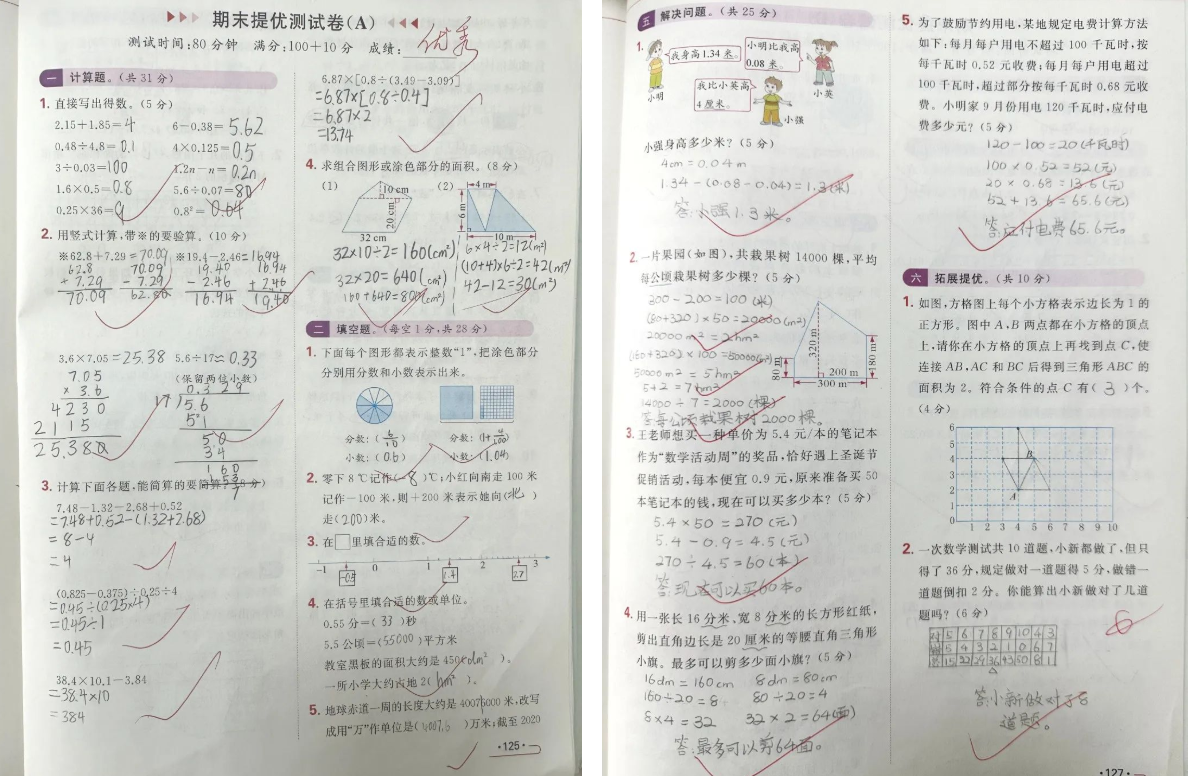 期末提优测试卷(A)
测试时间:80分钟 满分:100+10分 成绩: 优秀
一 计算题。(共31分)
1. 直接写出得数。(5分)
2.15+1.85=4 6-0.38=5.62
0.48÷4.8=0.1 4×0.125=0.5
3÷0.03=100 1.2n-n=0.2n
1.6×0.5=0.8 5.6÷0.07=80
0.25×36=9 0.8²=0.64
2. 用竖式计算,带※的要验算。(10分)
※62.8+7.29=70.09 ※19.4-2.46=16.94
62.8 70.09 19.40 16.94
+7.29 -7.29 -2.46 +2.46
70.09 62.80 16.94 19.40
3.6×7.05=25.38 5.6÷17≈0.33
(保留两位小数)
7.05
×3.6
4230
2115
25.380
0.329
17)5.6
51
50
34
160
3. 计算下面各题,能简算的要简算。
7.48-1.32-2.68+0.52
=7.48+0.52-(1.32+2.68)
=8-4
=4
(0.825-0.375)÷0.25÷4
=0.45÷(0.25×4)
=0.45÷1
=0.45
38.4×10.1-3.84
=38.4×10
=384
6.87×[0.8÷(3.49-3.09)]
=6.87×[0.8÷0.4]
=6.87×2
=13.74
4. 求组合图形或涂色部分的面积。(8分)
(1) 10 cm 20 cm 32 cm
(2) 4 m 6 m 10 m
32×10÷2=160(cm²)
32×20=640(cm²)
160+640=800(cm²)
6×4÷2=12(m²)
(10+4)×6÷2=42(m²)
42-12=30(m²)
二 填空题。(每空1分,共28分)
1. 下面每个图形都表示整数“1”,把涂色部分
分别用分数和小数表示出来。
分数:( ) 分数:( )
小数:(0.6) 小数:(1.04)
2. 零下8℃记作(-8)℃;小红向南走100米
记作-100米,则+200米表示她向(北)
走(200)米。
3. 在□里填合适的数。
-1 0 1 2 3
1.4 2.7
4. 在括号里填合适的数或单位。
0.55分=(33)秒
5.5公顷=(55000)平方米
教室黑板的面积大约是450(dm²)。
一所小学大约占地2(hm²)。
5. 地球赤道一周的长度大约是40076000米,改写
成用“万”作单位是( )万米;截至2020
·125·
五 解决问题。(共25分)
1.
我身高1.34米。
小明比我高
0.08米。
我比小英高
4厘米。
小明 小英 小强
小强身高多少米?(5分)
4cm=0.04m
1.34-(0.08-0.04)=1.3(米)
答:小强1.3米。
2. 一片果园(如图),共栽果树14000棵,平均
每公顷栽果树多少棵?(5分)
300-200=100(米)
(80+320)×50=20000(m²)
20000m²=2hm²
50000m²=5hm²
5+2=7hm²
14000÷7=2000(棵)
答:每公顷栽果树2000棵。
80 m 320 m 180 m
200 m
300 m
3. 王老师想买一种单价为5.4元/本的笔记本
作为“数学活动周”的奖品,恰好遇上圣诞节
促销活动,每本便宜0.9元,原来准备买50
本笔记本的钱,现在可以买多少本?(5分)
5.4×50=270(元)
5.4-0.9=4.5(元)
270÷4.5=60(本)
答:现在可以买60本。
4. 用一张长16分米、宽8分米的长方形红纸,
剪出直角边长是20厘米的等腰直角三角形
小旗。最多可以剪多少面小旗?(5分)
16dm=160cm 8dm=80cm
160÷20=8 80÷20=4
8×4=32 32×2=64(面)
答:最多可以剪64面。
5. 为了鼓励节约用电,某地规定电费计算方法
如下:每月每户用电不超过100千瓦时,按
每千瓦时0.52元收费;每月每户用电超过
100千瓦时,超过部分按每千瓦时0.68元收
费。小明家9月份用电120千瓦时,应付电
费多少元?(5分)
120-100=20(千瓦时)
100×0.52=52(元)
20×0.68=13.6(元)
52+13.6=65.6(元)
答:应付电费65.6元。
六 拓展提优。(共10分)
1. 如图,方格图上每个小方格表示边长为1的
正方形。图中A,B两点都在小方格的顶点
上,请你在小方格的顶点上再找到点C,使
连接AB,AC和BC后得到三角形ABC的
面积为2。符合条件的点C有(3)个。
(4分)
6
5
4
3
2
1
0
B
A
1 2 3 4 5 6 7 8 9 10
2. 一次数学测试共10道题,小新都做了,但只
得了36分,规定做对一道题得5分,做错一
道题倒扣2分。你能算出小新做对了几道
题吗?(6分)
6
对 5 6 7 8 9 10 4 3
错 5 4 3 2 1 0 6 7
15 22 29 36 43 50 8 1
答:小新做对了8
道题。
·127·